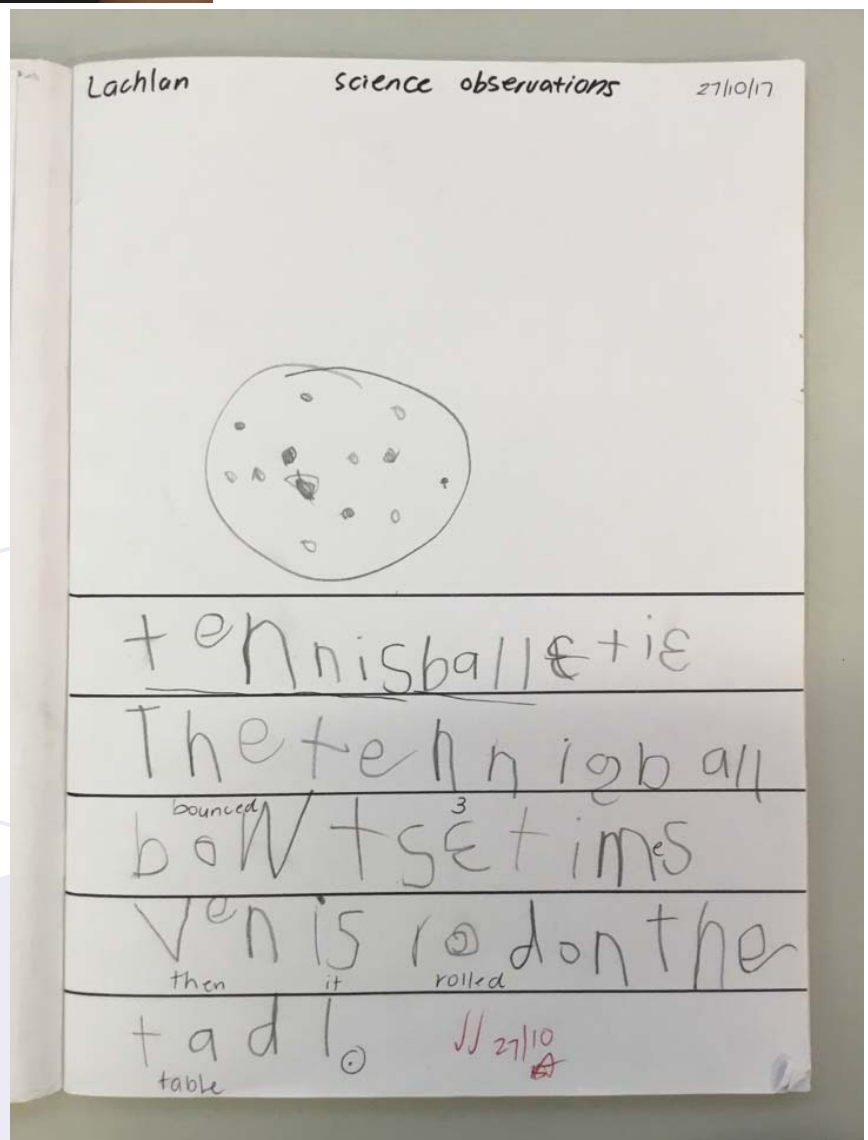 Lachlan science observations 27/10/17
tennisball
The tennisball
bounced 3
bowts 3 tim e s
ven is rod on the
then it rolled
tadl.
27/10
table